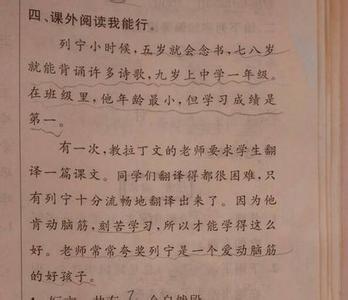 四、课外阅读我能行。
列宁小时候，五岁就会念书，七八岁
就能背诵许多诗歌，九岁上中学一年级。
在班级里，他年龄最小，但学习成绩是
第一。
有一次，教拉丁文的老师要求学生翻
译一篇课文。同学们翻译得都很困难，只
有列宁十分流畅地翻译出来了。因为他
肯动脑筋，刻苦学习，所以才能学得这么
好。老师常常夸奖列宁是一个爱动脑筋
的好孩子。